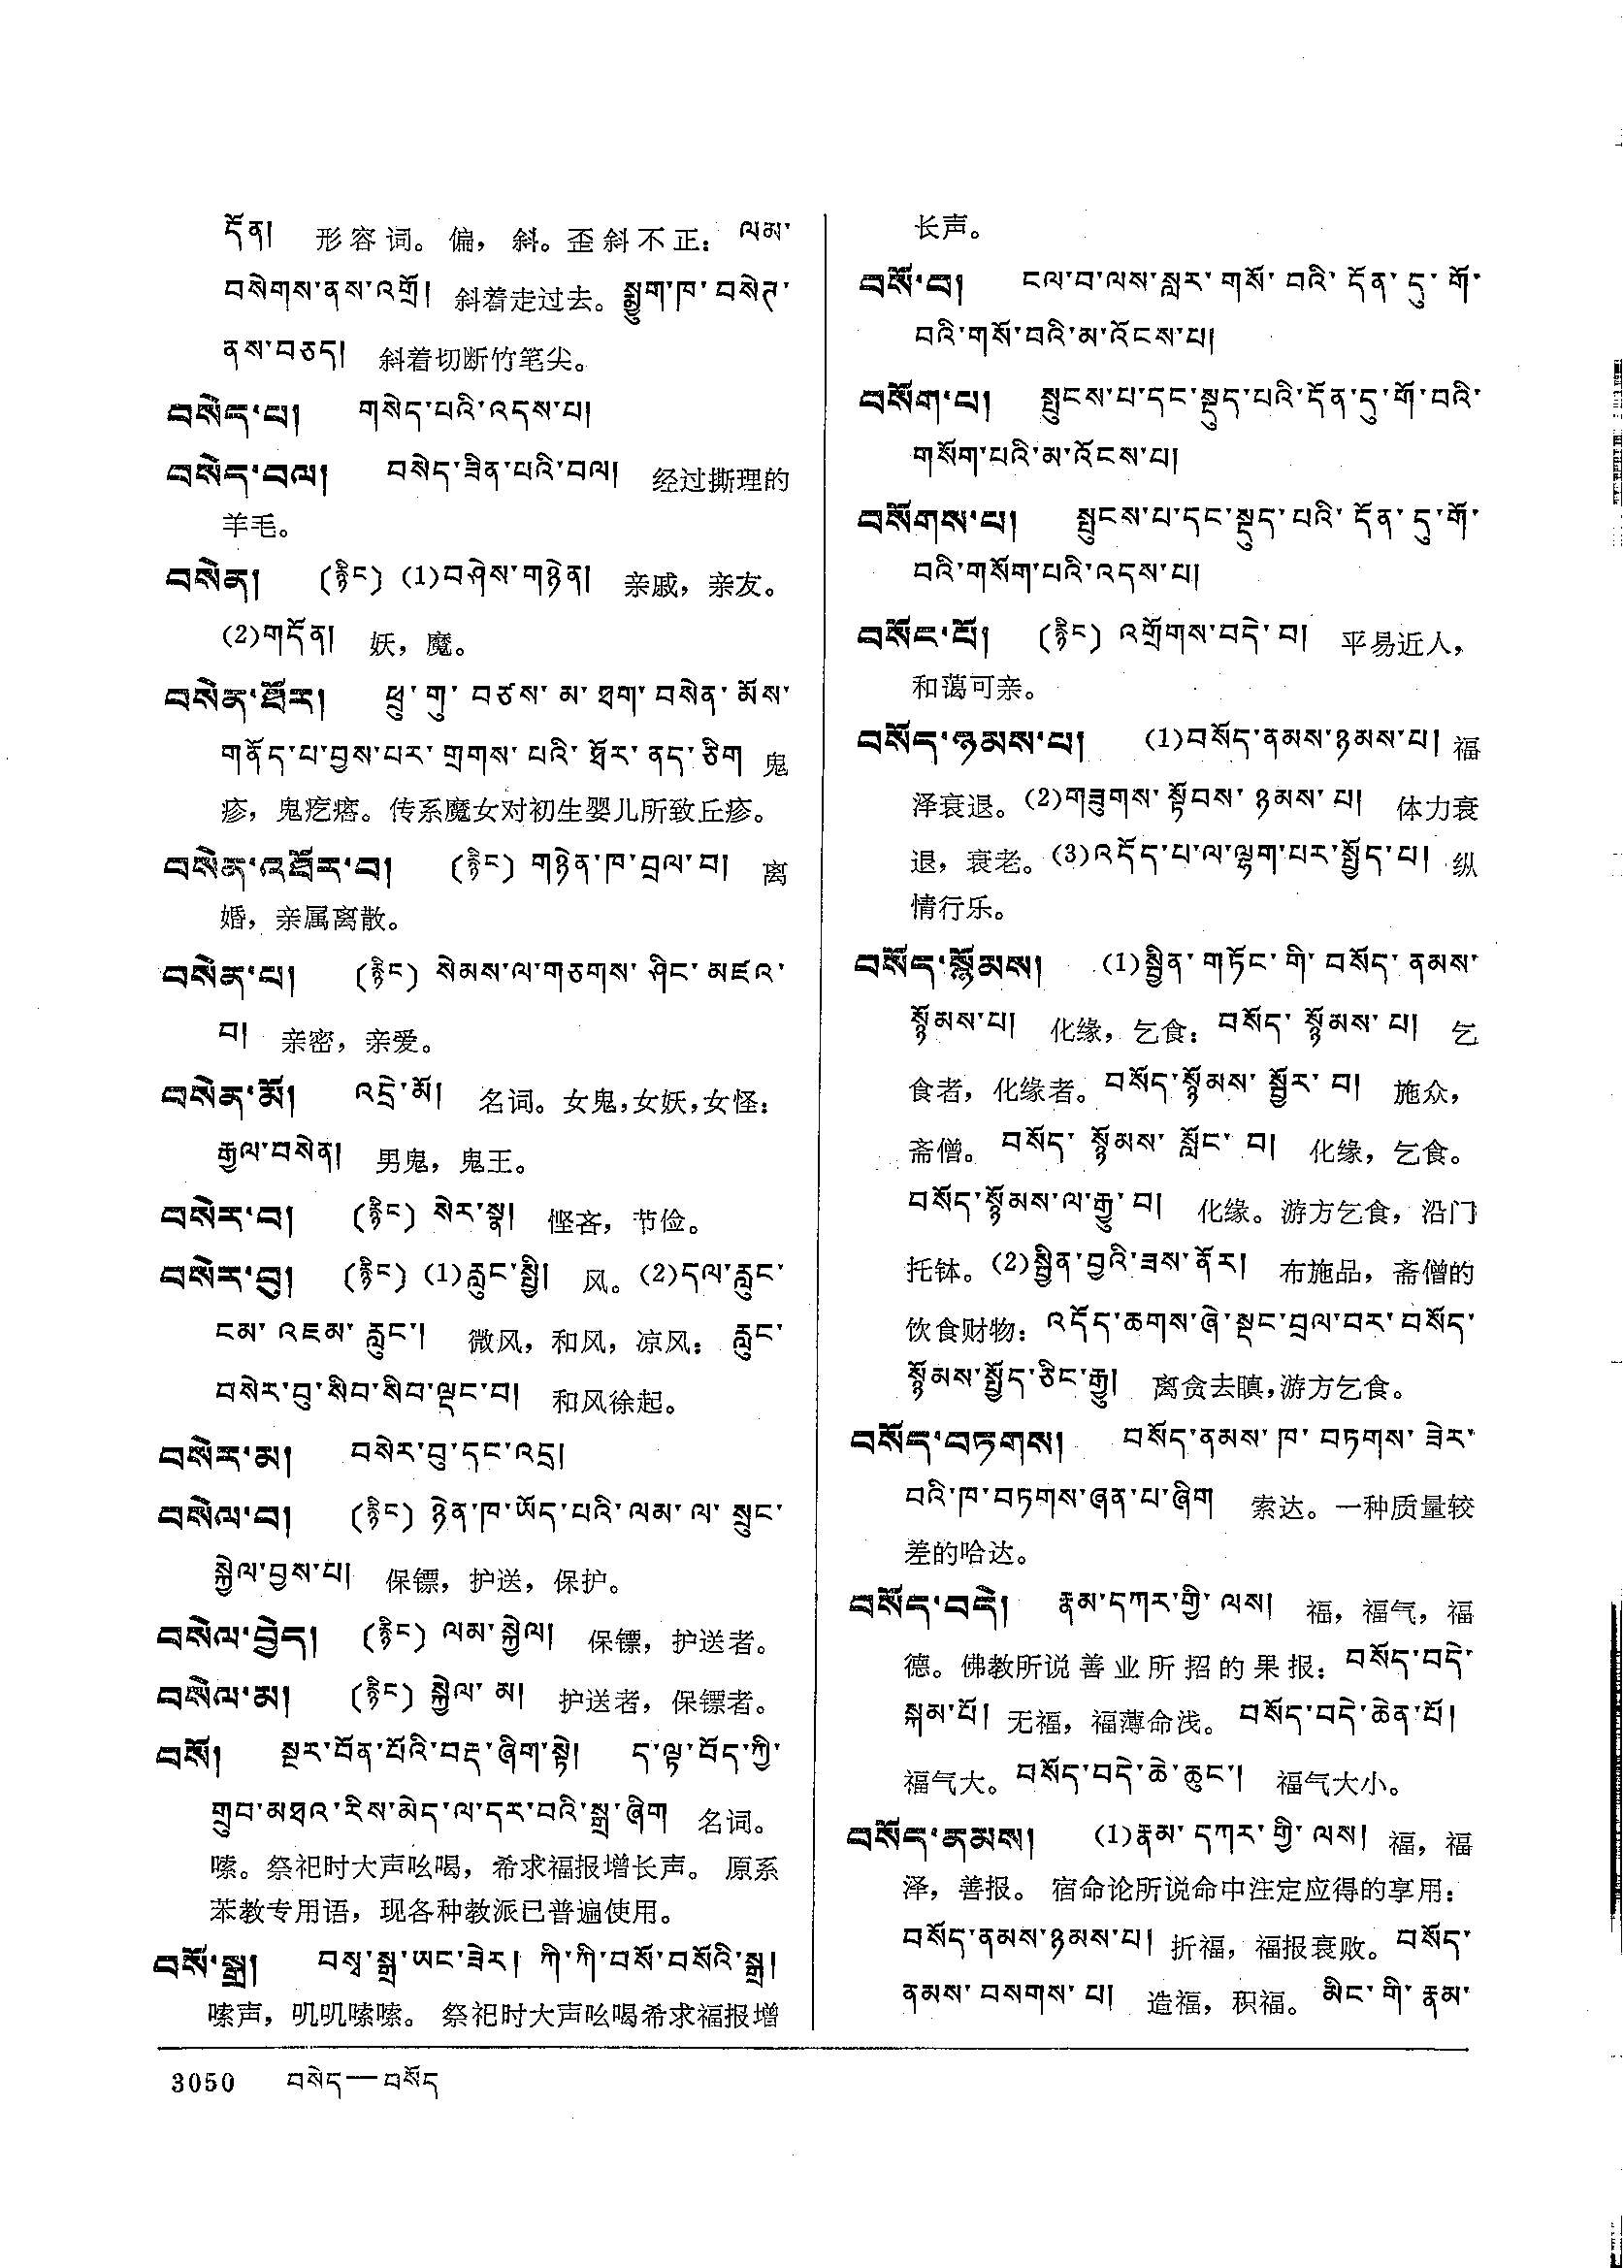 དོན། 形容词。偏，斜。歪斜不正：ལམ་
བསེགས་ནས་འགྲོ། 斜着走过去。སྨྱུག་ཁ་བསེཊ་
ནས་བཅད། 斜着切断竹笔尖。
བསེད་པ། གསེད་པའི་འདས་པ།
བསེད་བལ། བསེད་ཟིན་པའི་བལ། 经过撕理的
羊毛。
བསེན། (རྙིང) (1)བཤེས་གཉེན། 亲戚，亲友。
(2)གདོན། 妖，魔。
བསེན་ཐོར། ཕྲུ་གུ་བཙས་མ་ཐག་བསེན་མོས་
གནོད་པ་བྱས་པར་གྲགས་པའི་ཐོར་ནད་ཅིག 鬼
疹，鬼疙瘩。传系魔女对初生婴儿所致丘疹。
བསེན་འཐོར་བ། (རྙིང) གཉེན་ཁ་བྲལ་བ། 离
婚，亲属离散。
བསེན་པ། (རྙིང) སེམས་ལ་གཅགས་ཤིང་མཛའ་
བ། 亲密，亲爱。
བསེན་མོ། འདྲེ་མོ། 名词。女鬼，女妖，女怪：
རྒྱལ་བསེན། 男鬼，鬼王。
བསེར་བ། (རྙིང) སེར་སྣ། 悭吝，节俭。
བསེར་བུ། (རྙིང) (1)རླུང་སྤྱི། 风。(2)དལ་རླུང་
ངམ་འཇམ་རླུང་། 微风，和风，凉风：རླུང་
བསེར་བུ་སིབ་སིབ་ལྡང་བ། 和风徐起。
བསེར་མ། བསེར་བུ་དང་འདྲ།
བསེལ་བ། (རྙིང) ཉེན་ཁ་ཡོད་པའི་ལམ་ལ་སྲུང་
སྐྱེལ་བྱས་པ། 保镖，护送，保护。
བསེལ་བྱེད། (རྙིང) ལམ་སྐྱེལ། 保镖，护送者。
བསེལ་མ། (རྙིང) སྐྱེལ་མ། 护送者，保镖者。
བསོ། སྔར་བོན་པོའི་བརྡ་ཞིག་སྟེ། ད་ལྟ་བོད་ཀྱི་
གྲུབ་མཐའ་རིས་མེད་ལ་དར་བའི་སྒྲ་ཞིག 名词。
嗦。祭祀时大声吆喝，希求福报增长声。 原系
苯教专用语，现各种教派已普遍使用。
བསོ་སྒྲ། བསྭ་སྒྲ་ཡང་ཟེར། ཀི་ཀི་བསོ་བསོའི་སྒྲ།
嗦声，叽叽嗦嗦。 祭祀时大声吆喝希求福报增
长声。
བསོ་བ། ངལ་བ་ལས་སླར་གསོ་བའི་དོན་དུ་གོ་
བའི་གསོ་བའི་མ་འོངས་པ།
བསོག་པ། སྤུངས་པ་དང་སྡུད་པའི་དོན་དུ་གོ་བའི་
གསོག་པའི་མ་འོངས་པ།
བསོགས་པ། སྤུངས་པ་དང་སྡུད་པའི་དོན་དུ་གོ་
བའི་གསོག་པའི་འདས་པ།
བསོང་པོ། (རྙིང) འགྲོགས་བདེ་བ། 平易近人，
和蔼可亲。
བསོད་ཉམས་པ། (1)བསོད་ནམས་ཉམས་པ། 福
泽衰退。(2)གཟུགས་སྟོབས་ཉམས་པ། 体力衰
退，衰老。(3)འདོད་པ་ལ་ལྷག་པར་སྤྱོད་པ། 纵
情行乐。
བསོད་སྙོམས། (1)སྦྱིན་གཏོང་གི་བསོད་ནམས་
སྙོམས་པ། 化缘，乞食：བསོད་སྙོམས་པ། 乞
食者，化缘者。བསོད་སྙོམས་སྦྱོར་བ། 施众，
斋僧。བསོད་སྙོམས་སློང་བ། 化缘，乞食。
བསོད་སྙོམས་ལ་རྒྱུ་བ། 化缘。游方乞食，沿门
托钵。(2)སྦྱིན་བྱའི་ཟས་ནོར། 布施品，斋僧的
饮食财物：འདོད་ཆགས་ཞེ་སྡང་བྲལ་བར་བསོད་
སྙོམས་སྤྱོད་ཅིང་རྒྱུ། 离贪去瞋，游方乞食。
བསོད་བཏགས། བསོད་ནམས་ཁ་བཏགས་ཟེར་
བའི་ཁ་བཏགས་ཞན་པ་ཞིག 索达。一种质量较
差的哈达。
བསོད་བདེ། རྣམ་དཀར་གྱི་ལས། 福，福气，福
德。佛教所说善业所招的果报：བསོད་བདེ་
སྐམ་པོ། 无福，福薄命浅。བསོད་བདེ་ཆེན་པོ།
福气大。བསོད་བདེ་ཆེ་ཆུང་། 福气大小。
བསོད་ནམས། (1)རྣམ་དཀར་གྱི་ལས། 福，福
泽，善报。 宿命论所说命中注定应得的享用：
བསོད་ནམས་ཉམས་པ། 折福，福报衰败。བསོད་
ནམས་བསགས་པ། 造福，积福。མིང་གི་རྣམ་
3050 བསེད—བསོད